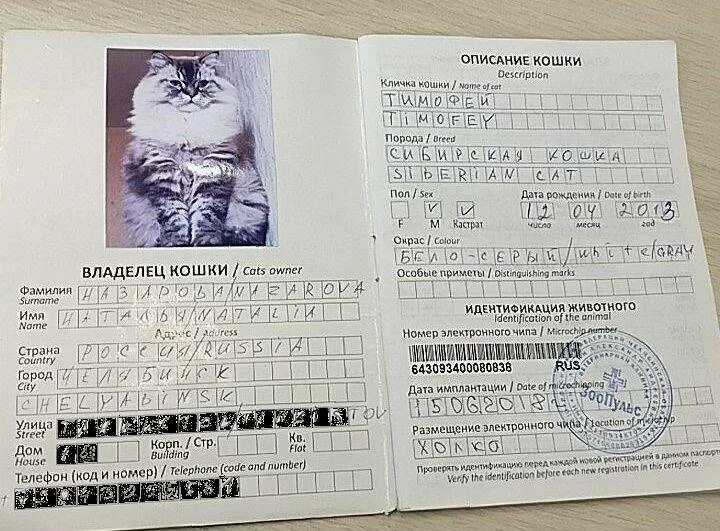 ВЛАДЕЛЕЦ КОШКИ / Cats owner
Фамилия НАЗАРОВА/NAZAROVA
Surname
Имя НАТАЛЬЯ/NATALIA
Name
Адрес / Address
Страна РОССИЯ/RUSSIA
Country
Город ЧЕЛЯБИНСК/
City
CHELYABINSK
Улица
Street
Дом Корп. / Стр. Кв.
House Building Flat
Телефон (код и номер) / Telephone (code and number)
ОПИСАНИЕ КОШКИ
Description
Кличка кошки / Name of cat
ТИМОФЕЙ
TIMOFEY
Порода / Breed
СИБИРСКАЯ КОШКА
SIBERIAN CAT
Пол / Sex Дата рождения / Date of birth
V V 12 04 2013
F M Кастрат число месяц год
Окрас / Colour
БЕЛО-СЕРЫЙ/white/GRAY
Особые приметы / Distinguishing marks
ИДЕНТИФИКАЦИЯ ЖИВОТНОГО
Identification of the animal
Номер электронного чипа / Microchip number
643093400080838 RUS
Дата имплантации / Date of microchipping
15062018
ЗооПульс
Размещение электронного чипа / Location of microchip
ХОЛКА
Проверять идентификацию перед каждой новой регистрацией в данном паспорте
Verify the identification before each new registration in this certificate